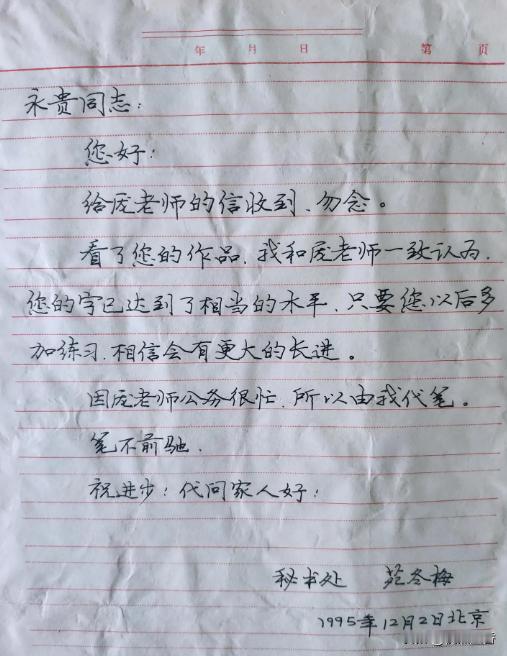 年 月 日 第 页
永贵同志：
您好：
给庞老师的信收到、勿念。
看了您的作品、我和庞老师一致认为、
您的字已达到了相当的水平、只要您以后多
加练习、相信会有更大的长进。
因庞老师公务很忙、所以由我代笔。
笔不前驰、
祝进步；代问家人好；
秘书处 范冬梅
1995年12月2日北京